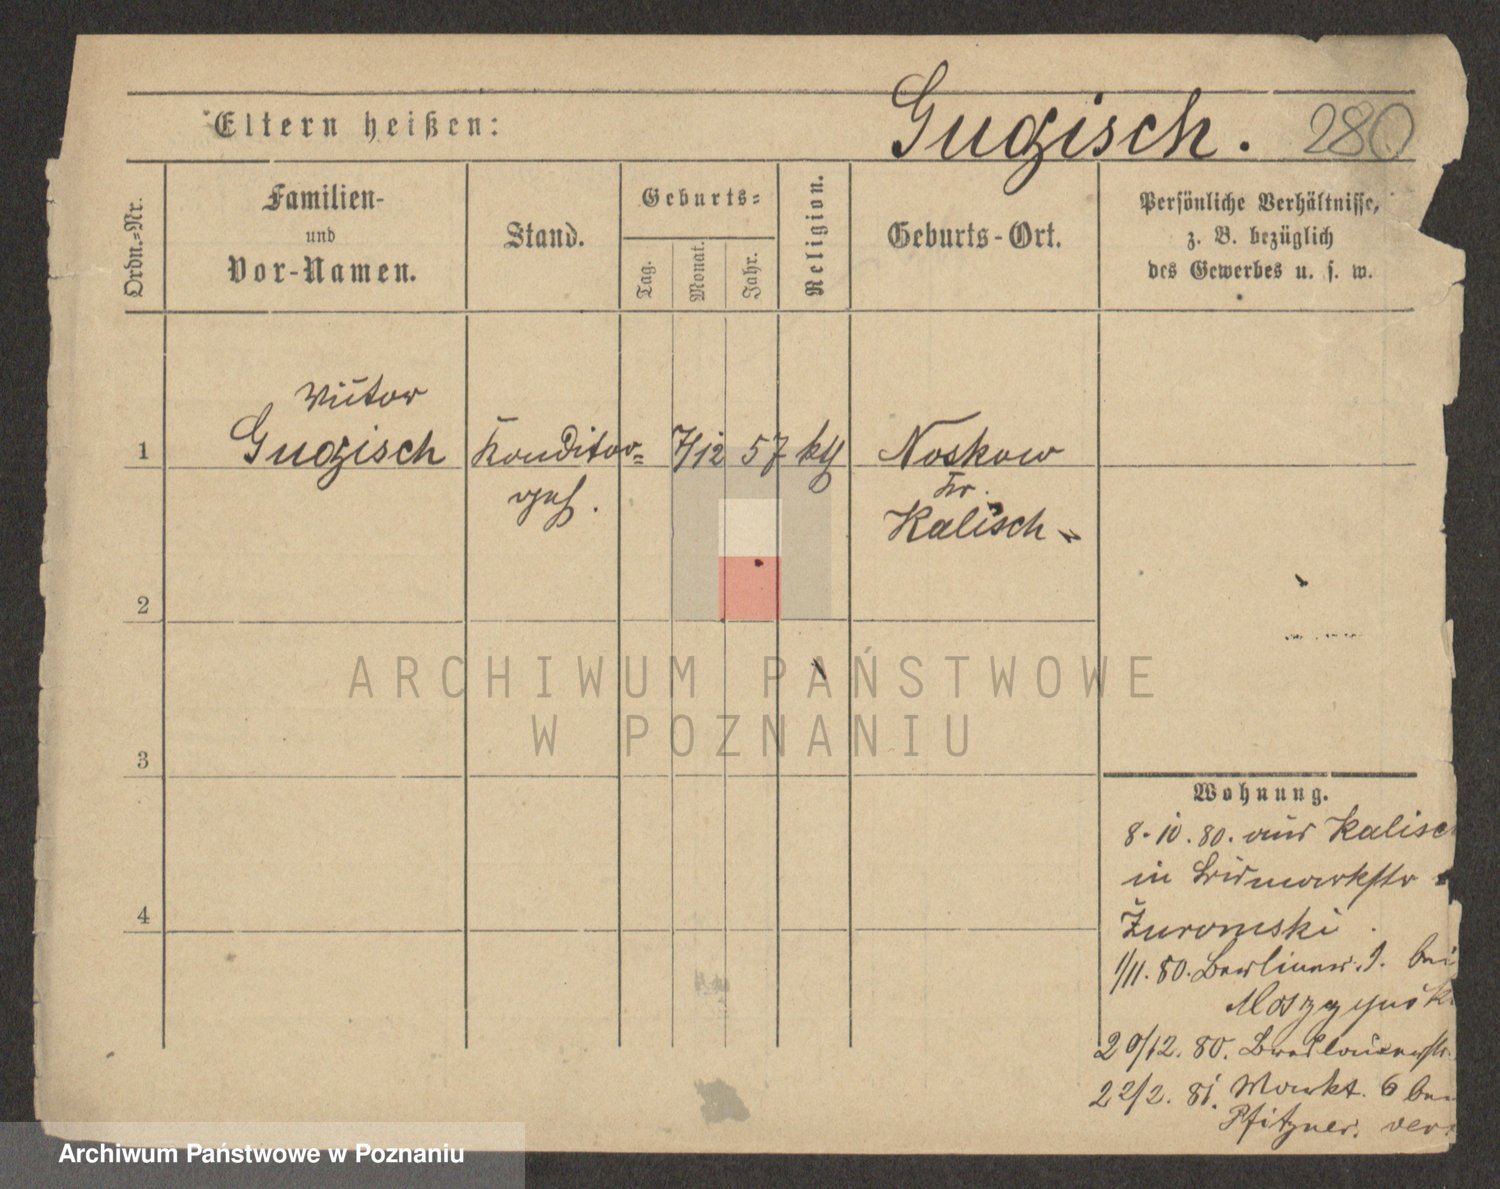 Eltern heißen:
Gugisch. 280
Ordn.=Nr.
Familien-
und
Vor-Namen.
Stand.
Geburts=
Tag.
Monat.
Jahr.
Religion.
Geburts-Ort.
Persönliche Verhältnisse,
z. B. bezüglich
des Gewerbes u. s. w.
Victor
1 Gugisch Konditor= 7/12 57 kth Noskow
geh. Kr.
Kalisch
2
3
4
ARCHIWUM PAŃSTWOWE
W POZNANIU
Wohnung.
8.10.80. aus Kalisch
in Bismarkstr
Żuromski
1/11.80. Berliner. 9. bei
20/12. 80. Breslauerstr.
22/2. 81. Markt. 6 bei
Pfitzner.
Archiwum Państwowe w Poznaniu